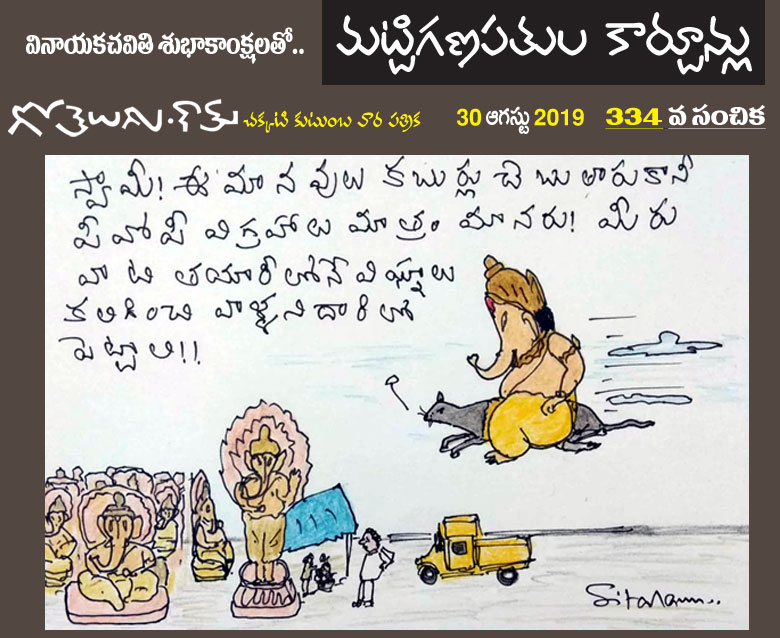 వినాయకచవితి శుభాకాంక్షలతో..
మట్టిగణపతుల కార్టూన్లు
గోతెలుగు.కామ్ చక్కటి కుటుంబ వార పత్రిక 30 ఆగస్టు 2019 334 వ సంచిక
స్వామీ! ఈ మానవులు కబుర్లు చెబుతారుకానీ
పీవోపీ విగ్రహాలు మాత్రం మానరు! మీరు
వాటి తయారీలోనే విఘ్నాలు
కలిగించి వాళ్ళని దారిలో
పెట్టాలి!!
Sitaram..